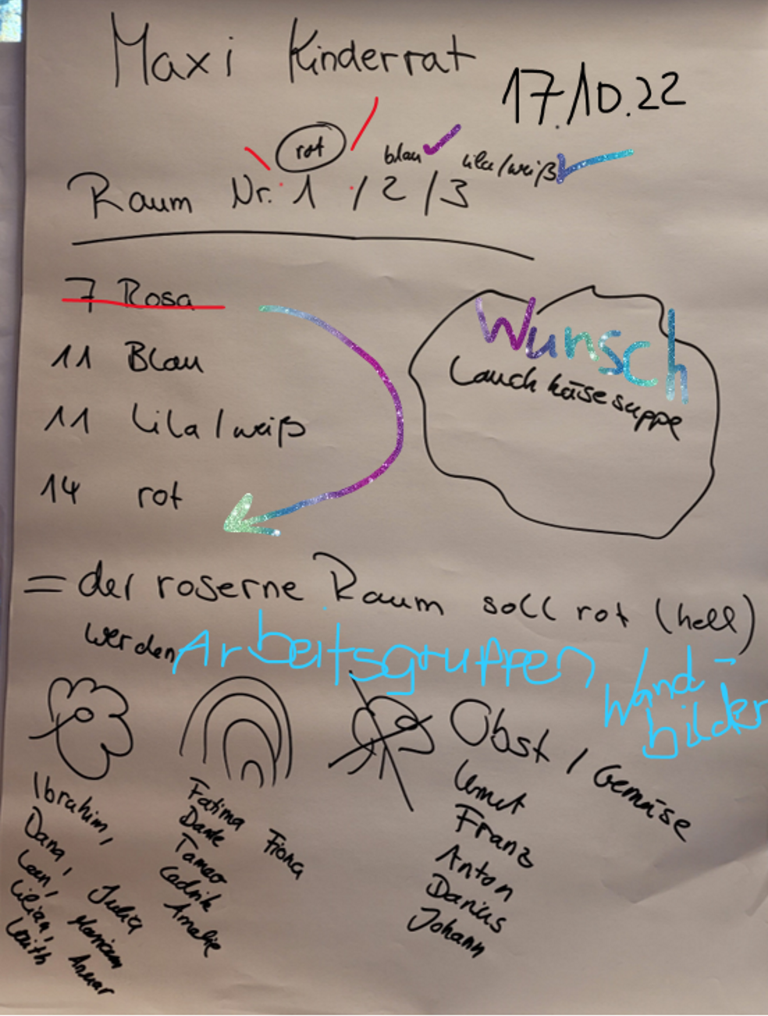 Maxi Kinderrat
17.10.22
rot blau lila/weiß
Raum Nr. 1 / 2 / 3
7 Rosa
11 Blau
11 Lila / weiß
14 rot
Wunsch
Lauchkäsesuppe
= der roserne Raum soll rot (hell)
werden
Arbeitsgruppen
Wand-
bilder
Ibrahim,
Dana,
Leen, Julia
Lilian, Mariam
Laith Anuar
Fatima Fiona
Dante
Tameo
Cedrik
Amelie
Obst / Gemüse
Umut
Franz
Anton
Darius
Johann